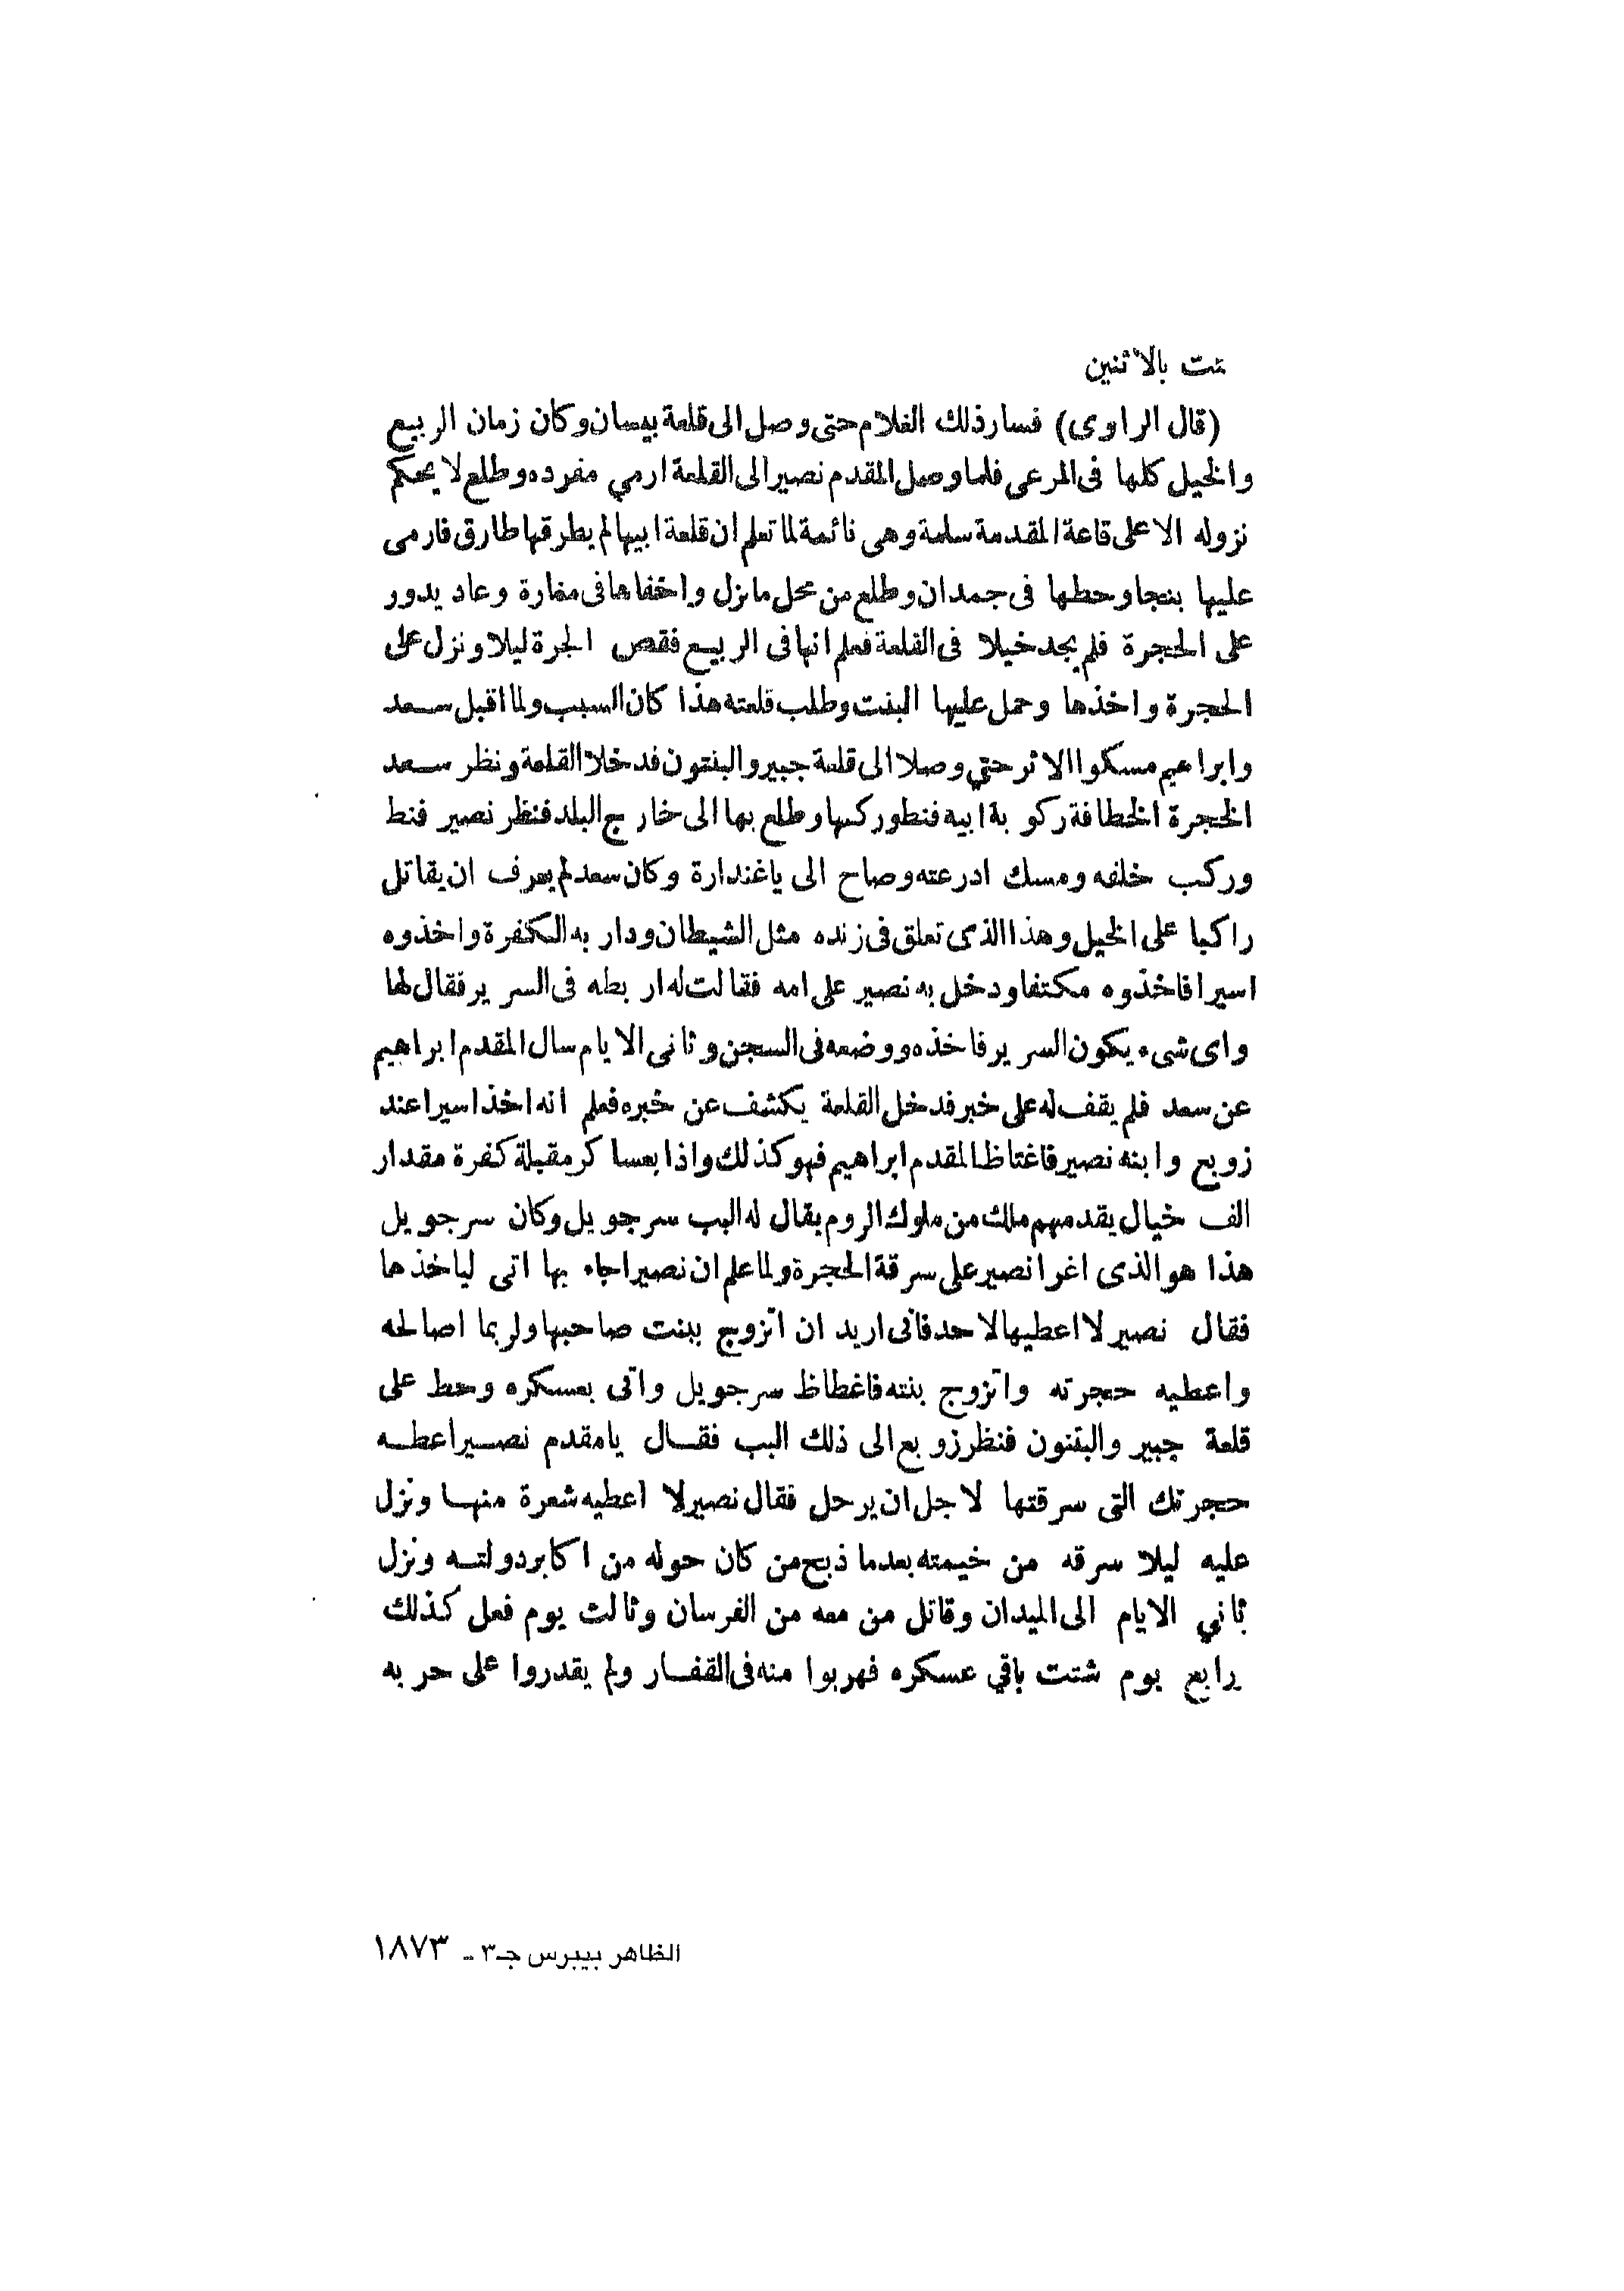 بالأثنين
(قال الراوى) فسار ذلك الغلام حتى وصل الى قلعة بيسان وكان زمان الربيع
والخيل كلها فى المرعى فلما وصل المقدم نصير الى القلعة ارمي مفرده وطلع لا يحكم
نزوله الا على قاعة المقدمة سلمة وهى نائمة لما تعلم ان قلعة ابيها لم يطرقها طارق فارمى
عليها بنجا وحطها فى جمدان وطلع من محل ما نزل واخفاها فى مغارة وعاد يدور
على الحجرة فلم يجد خيلا فى القلعة فعلم انها فى الربيع فقص الجرة ليلا ونزل على
الحجرة واخذها وحمل عليها البنت وطلب قلعته هذا كان السبب ولما اقبل سعد
وابراهيم مسكوا الاثر حتي وصلا الى قلعة جبير والبنتون فدخلا القلعة ونظر سعد
الحجرة الخطافة ركوبة ابيه فنط وركبها وطلع بها الى خارج البلد فنظر نصير فنط
وركب خلفه ومسك ادرعته وصاح الى ياغندارة وكان سعد لم يعرف ان يقاتل
راكبا على الخيل وهذا الذى تعلق فى زنده مثل الشيطان ودار به الكفرة واخذوه
اسيرا فاخذوه مكتفا ودخل به نصير على امه فقالت له اربطه فى السرير فقال لها
واى شىء يكون السرير فاخذه ووضعه فى السجن وثانى الايام سال المقدم ابراهيم
عن سعد فلم يقف له على خبر فدخل القلعة يكشف عن خبره فعلم انه اخذ اسيرا عند
زوبع وابنه نصير فاغتاظ المقدم ابراهيم فهو كذلك واذا بعساكر مقبلة كفرة مقدار
الف خيال يقدمهم ملك من ملوك الروم يقال له البب سرجويل وكان سرجويل
هذا هو الذى اغرا نصير على سرقة الحجرة ولما علم ان نصيرا جاء بها اتى لياخذها
فقال نصير لا اعطيها لاحد فانى اريد ان اتزوج ببنت صاحبها ولربما اصالحه
واعطيه حجرته واتزوج بنته فاغطاظ سرجويل واتى بعسكره وحط على
قلعة جبير والبقنون فنظر زوبع الى ذلك البب فقال يامقدم نصير اعطه
حجرتك التى سرقتها لاجل ان يرحل فقال نصير لا اعطيه شعرة منها ونزل
عليه ليلا سرقه من خيمته بعدما ذبح من كان حوله من اكابر دولته ونزل
ثاني الايام الى الميدان وقاتل من معه من الفرسان وثالث يوم فعل كذلك
رابع يوم شتت باقي عسكره فهربوا منه فى القفار ولم يقدروا على حربه
الظاهر بيبرس جـ٣ - ١٨٧٣